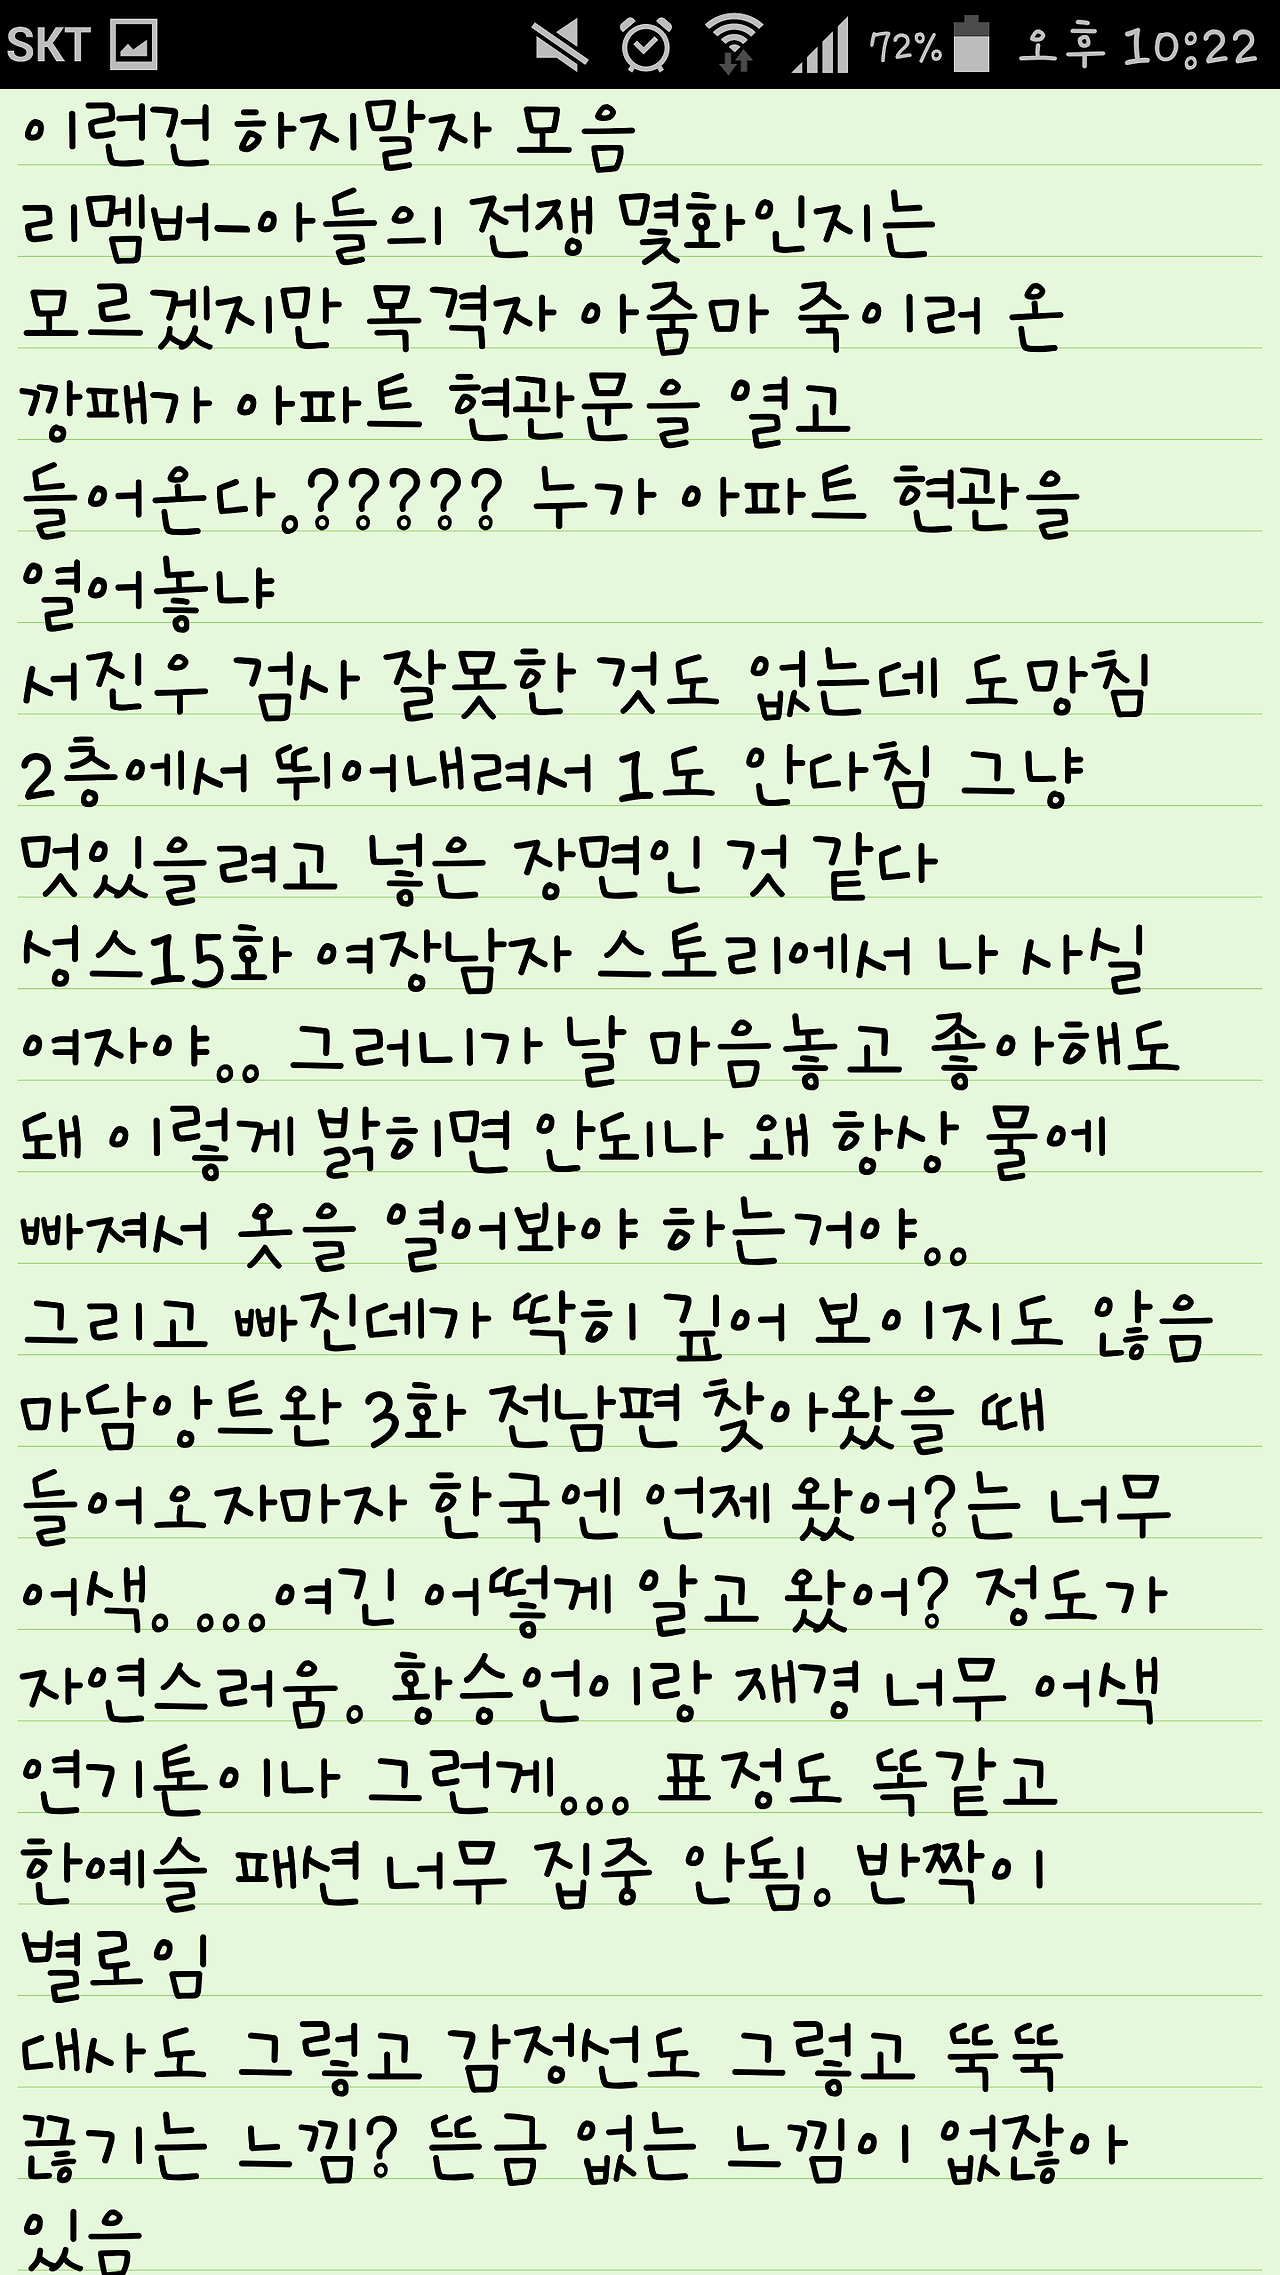 SKT 72% 오후 10:22
이런건 하지말자 모음
리멤버-아들의 전쟁 몇화인지는
모르겠지만 목격자 아줌마 죽이러 온
깡패가 아파트 현관문을 열고
들어온다.????? 누가 아파트 현관을
열어놓냐
서진우 검사 잘못한 것도 없는데 도망침
2층에서 뛰어내려서 1도 안다침 그냥
멋있을려고 넣은 장면인 것 같다
성스15화 여장남자 스토리에서 나 사실
여자야.. 그러니가 날 마음놓고 좋아해도
돼 이렇게 밝히면 안되나 왜 항상 물에
빠져서 옷을 열어봐야 하는거야..
그리고 빠진데가 딱히 깊어 보이지도 않음
마담앙트완 3화 전남편 찾아왔을 때
들어오자마자 한국엔 언제 왔어?는 너무
어색. ...여긴 어떻게 알고 왔어? 정도가
자연스러움. 황승언이랑 재경 너무 어색
연기톤이나 그런게... 표정도 똑같고
한예슬 패션 너무 집중 안됨. 반짝이
별로임
대사도 그렇고 감정선도 그렇고 뚝뚝
끊기는 느낌? 뜬금 없는 느낌이 없잖아
있음